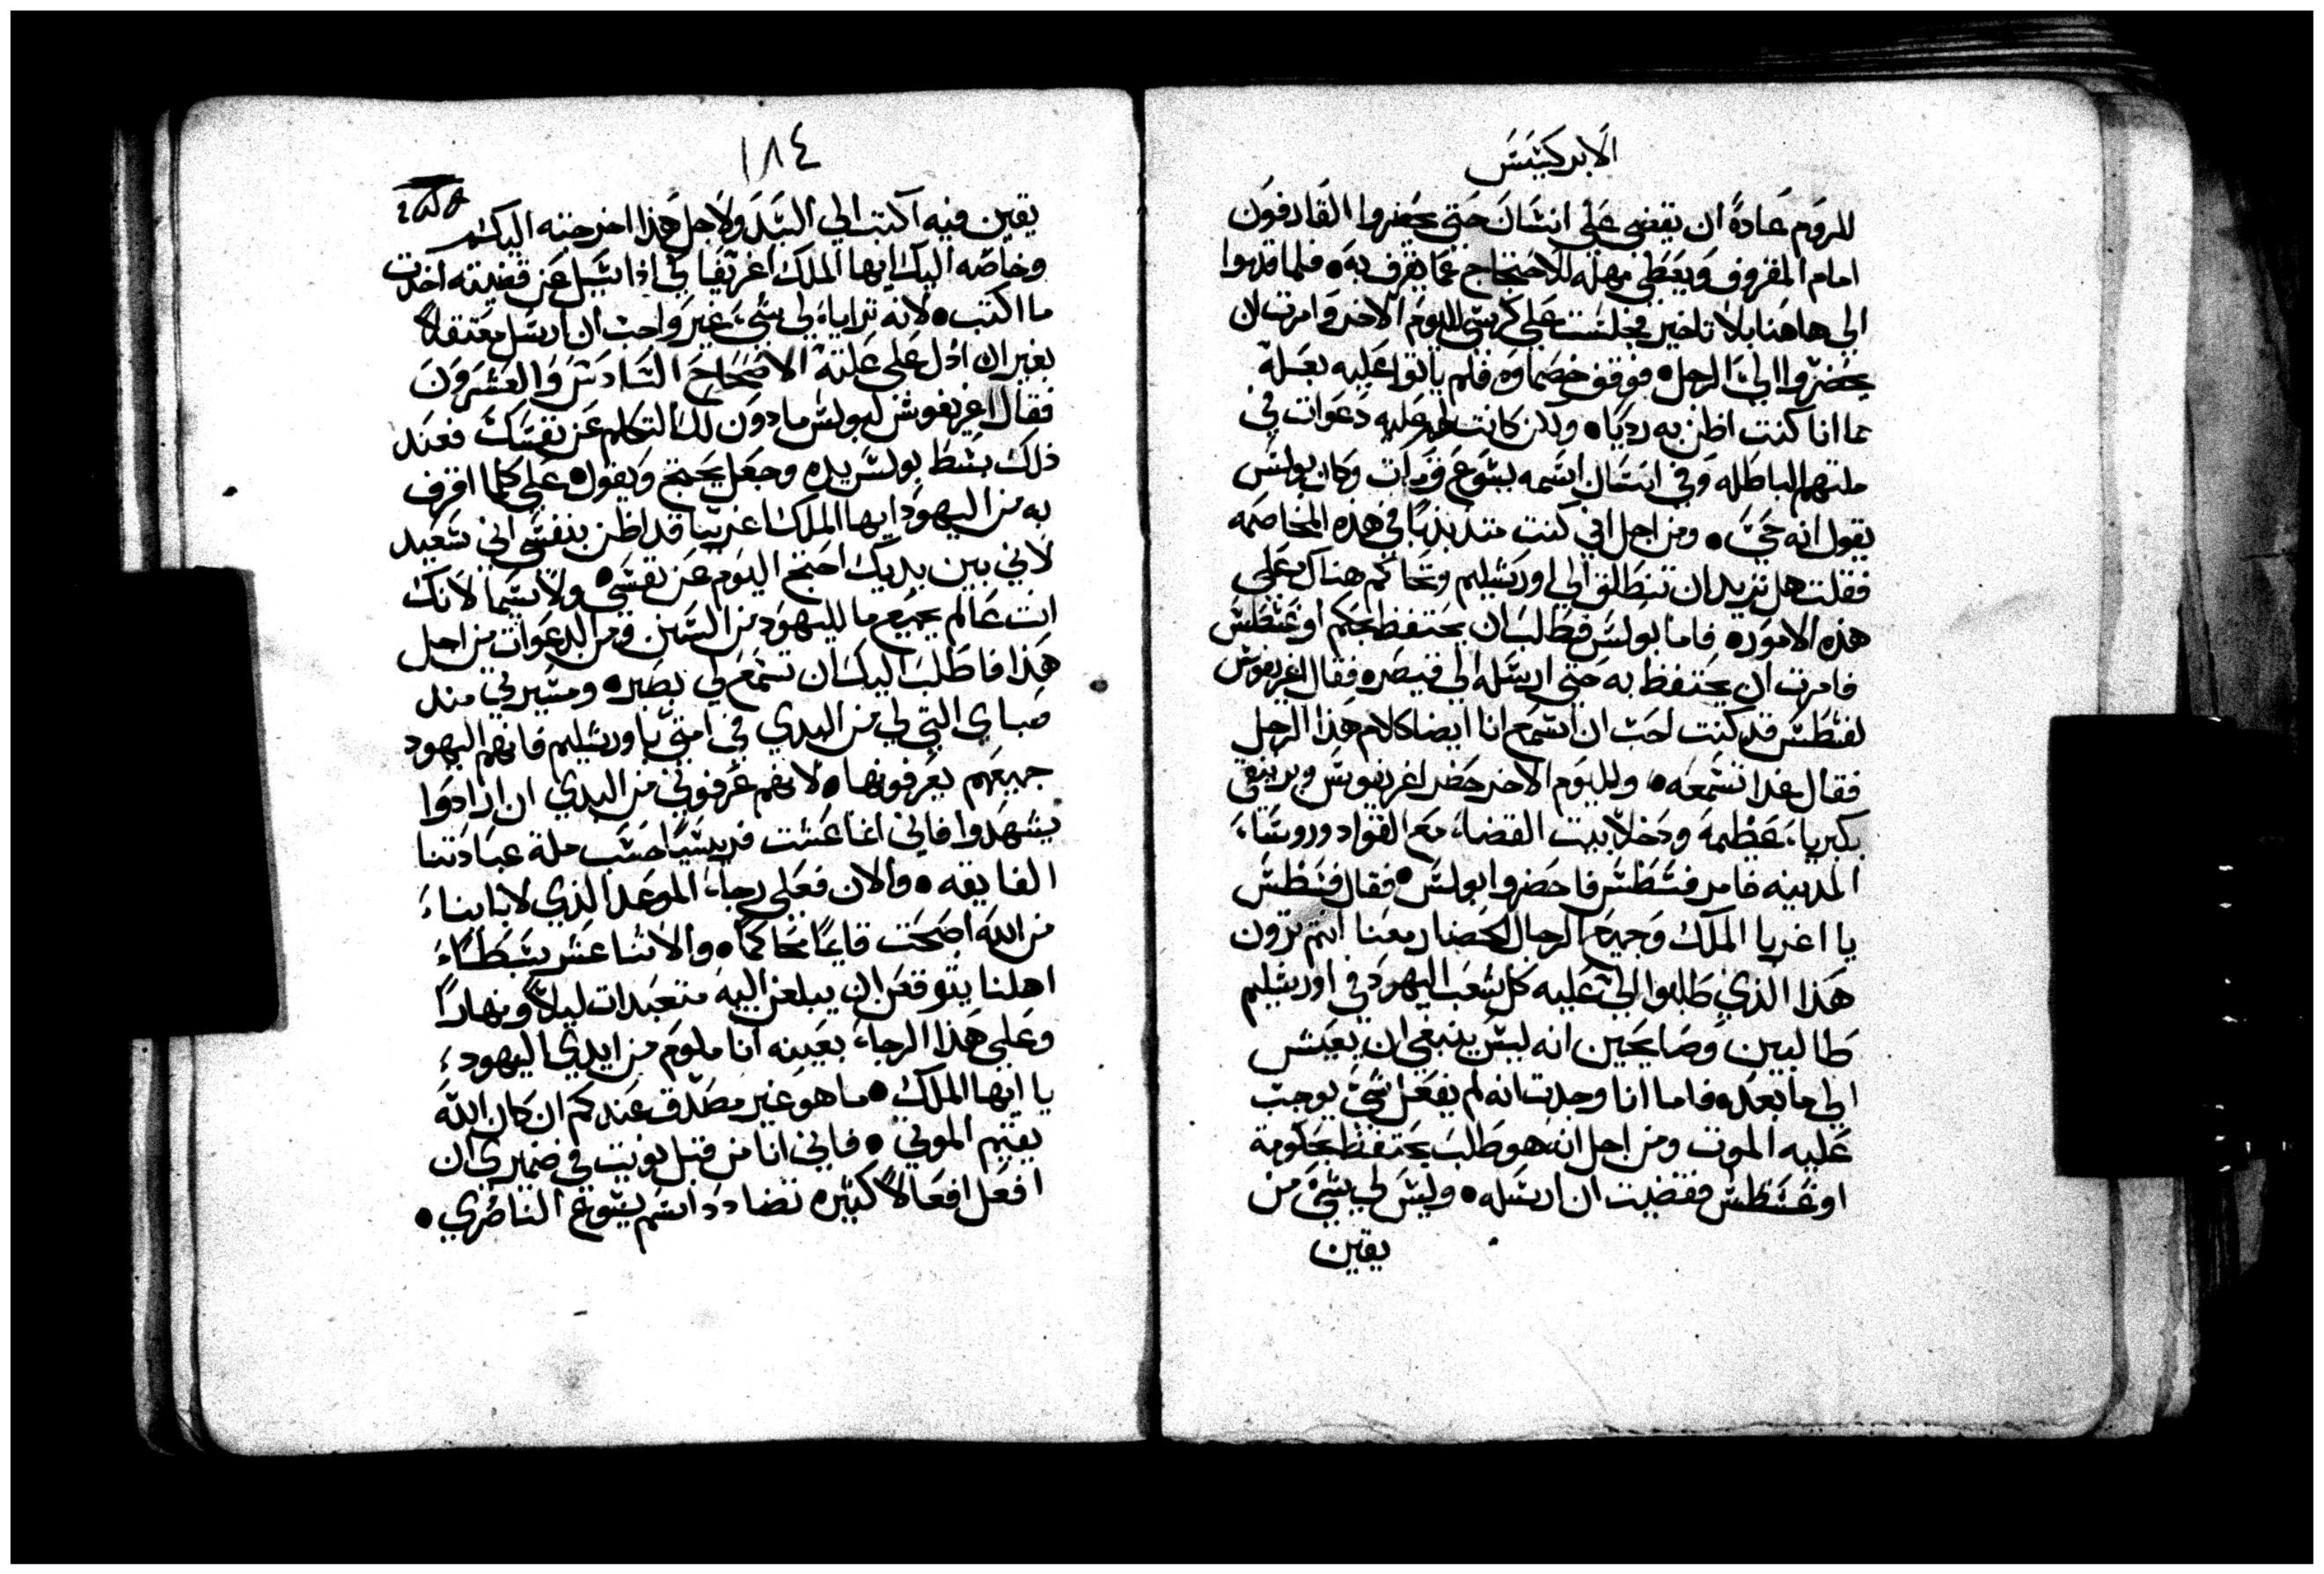 الابركسيس
للروم عادةً ان يقضى على انسان حتى يحضروا القادفون
امام المقروف ويعطى مهله للاحتجاج عما يقرف به • فلما قدموا
الى هاهنا بلا تاخير فجلست على كرسى لليوم الاخر وامرت ان
يحضروا الىّ الرجل • فوقف خصماوه فلم ياتوا عليه بعلة
مما انا كنت اظن به رديًا • ولكن كانت لهم عليه دعوات في
ملتهم الباطله وفي انسان اسمه يسوع قد مات وكان بولس
يقول انه حيّ • ومن اجل اني كنت متذبذبًا في هذه المخاصمه
فقلت هل تريد ان تنطلق الى اورشليم وتحاكم هناك على
هذه الامور • فاما بولس فطلب ان يحتفظ لحكم اوغسطس
فامرت ان يحتفظ به حتى ارسله الى قيصر • فقال اغريفوس
لفسطس قد كنت احب ان اسمع انا ايضا كلام هذا الرجل
فقال غدا تسمعه • ولليوم الاخر حضر اغريفوس وبرينقى
بكبرياء عظيمة ودخلا بيت القضاء مع القواد وروساء
المدينه فامر فسطس فاحضروا بولس • فقال فسطس
يا اغربا الملك وجميع الرجال الحضار معنا انتم ترون
هذا الذي طلبوا الىّ عليه كل شعب اليهود في اورشليم
طالبين وصايحين انه ليس ينبغي ان يعيش
الى ما بعد • فاما انا وجدت انه لم يفعل شيً يوجب
عليه الموت ومن اجل انه هو طلب يحتفظ لحكومة
اوغسطس فقضيت ان ارسله • وليس لي شيً من
يقين
١٨٤
يقين فيه اكتب الى السيد ولاجل هذا اخرجته اليكم
وخاصه اليك ايها الملك اغريفا لي اذا سيل عن قضيته اخذت
ما اكتب • لانه تراياء لي شيً غير واجب ان ارسل معتقلاً
بغير ان ادل على علته الاصحاح السادس والعشرون
فقال اغريفوس لبولس مادون لك التكلم عن نفسك فعند
ذلك بسط بولس يده وجعل يحتج ويقول • على كلما اقرف
به من اليهود ايها الملك اغريبا قد اظن بنفسي اني سعيد
لاني بين يديك احتج اليوم عن نفسي • ولا سيما لانك
انت عالم بجميع ما لليهود من السنن ومن الدعوات من اجل
هذا فاطلب اليك ان تسمع لي بصبر • ومسيرتي منذ
صباى التي لي من البدي في امتي باورشليم فانهم اليهود
جميعهم يعرفونها • لانهم عرفوني من البدي ان ارادوا
يشهدوا فاني انما عشت فريسيًا حسب ملة عبادتنا
الفايقه • والان فعلى رجاء الموعد الذي لابايناء
من الله اصبحت قايمًا محاكمًا • والاثنا عشر سبطاء
اهلنا يتوقعن ان يبلغن اليه متعبدات ليلاً ونهارًا
وعلى هذا الرجاء بعينه انا ملوم من ايدي اليهود
يا ايها الملك • ما هو غير مصدق عندكم ان كان الله
يقيم الموتى • فاني انا من قبل نويت في ضميري ان
افعل افعالاً كثيره تضادد اسم يسوع الناصري •